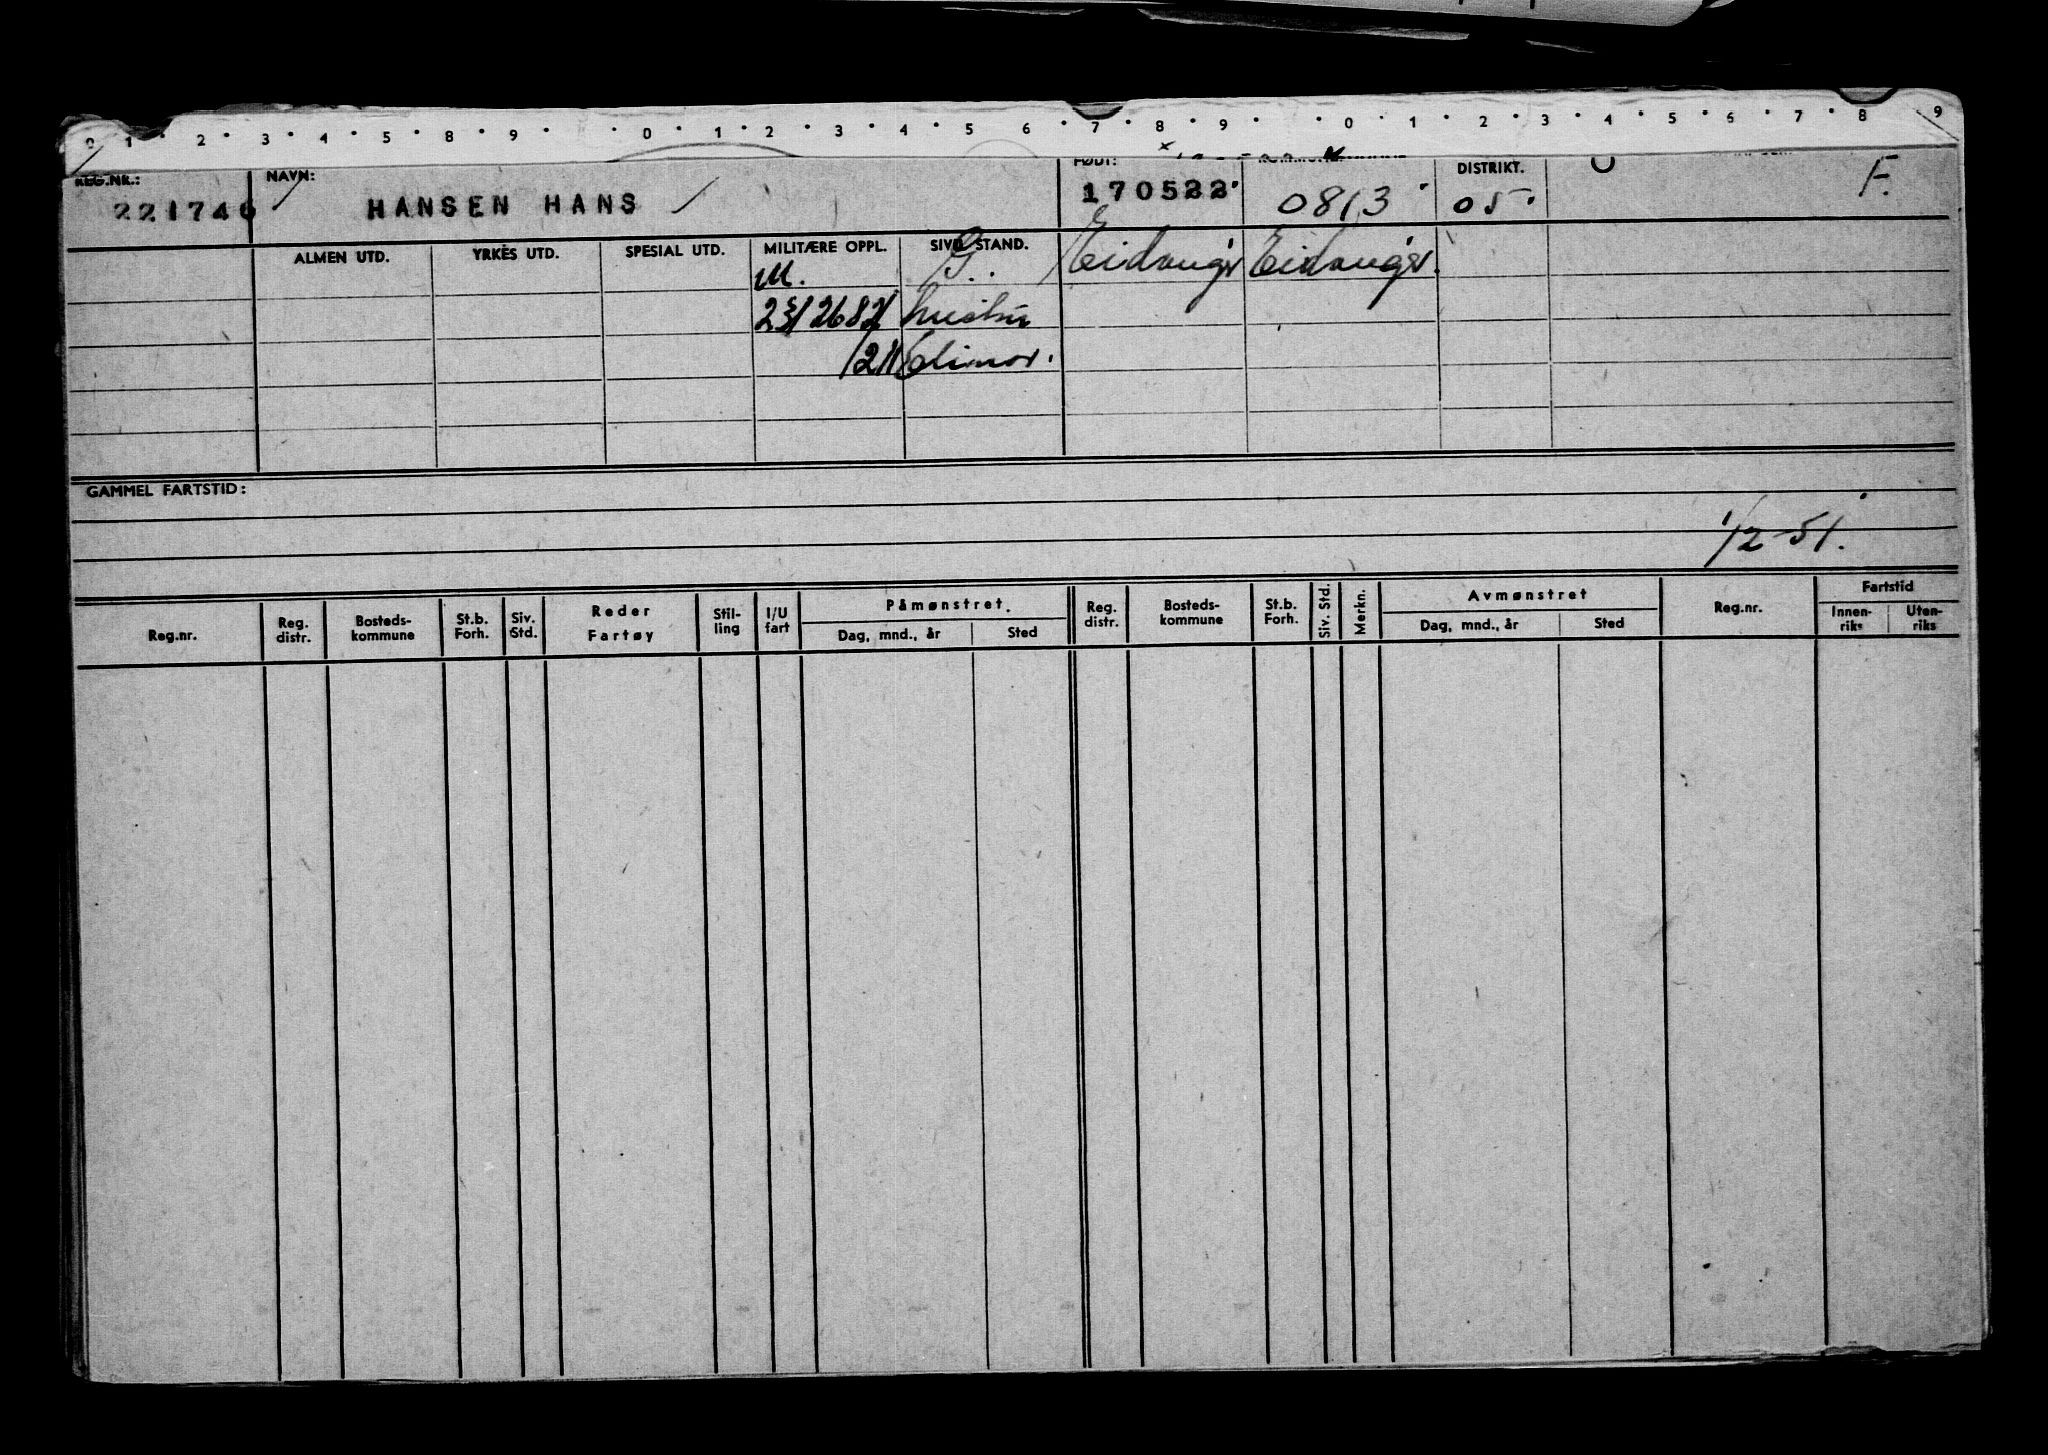 0 1 2 3 4 5 8 9 0 1 2 3 4 5 6 7 8 9 0 1 2 3 4 5 6 7 8 9
REG.NR.: NAVN: FØDT: DISTRIKT.
221746 HANSEN HANS 170522 0813 05 F.
ALMEN UTD. YRKES UTD. SPESIAL UTD. MILITÆRE OPPL. SIVIL STAND.
M. G. Eidanger Eidanger
Elinor.
GAMMEL FARTSTID:
1/2-51.
Reg.nr. Reg. distr. Bosteds- kommune St.b. Forh. Siv. Std. Reder Fartøy Stil- ling I/U fart Påmønstret Dag, mnd., år Sted Reg. distr. Bosteds- kommune St.b. Forh. Siv. Std. Merkn. Avmønstret Dag, mnd., år Sted Reg.nr. Fartstid Innen- riks Uten- riks